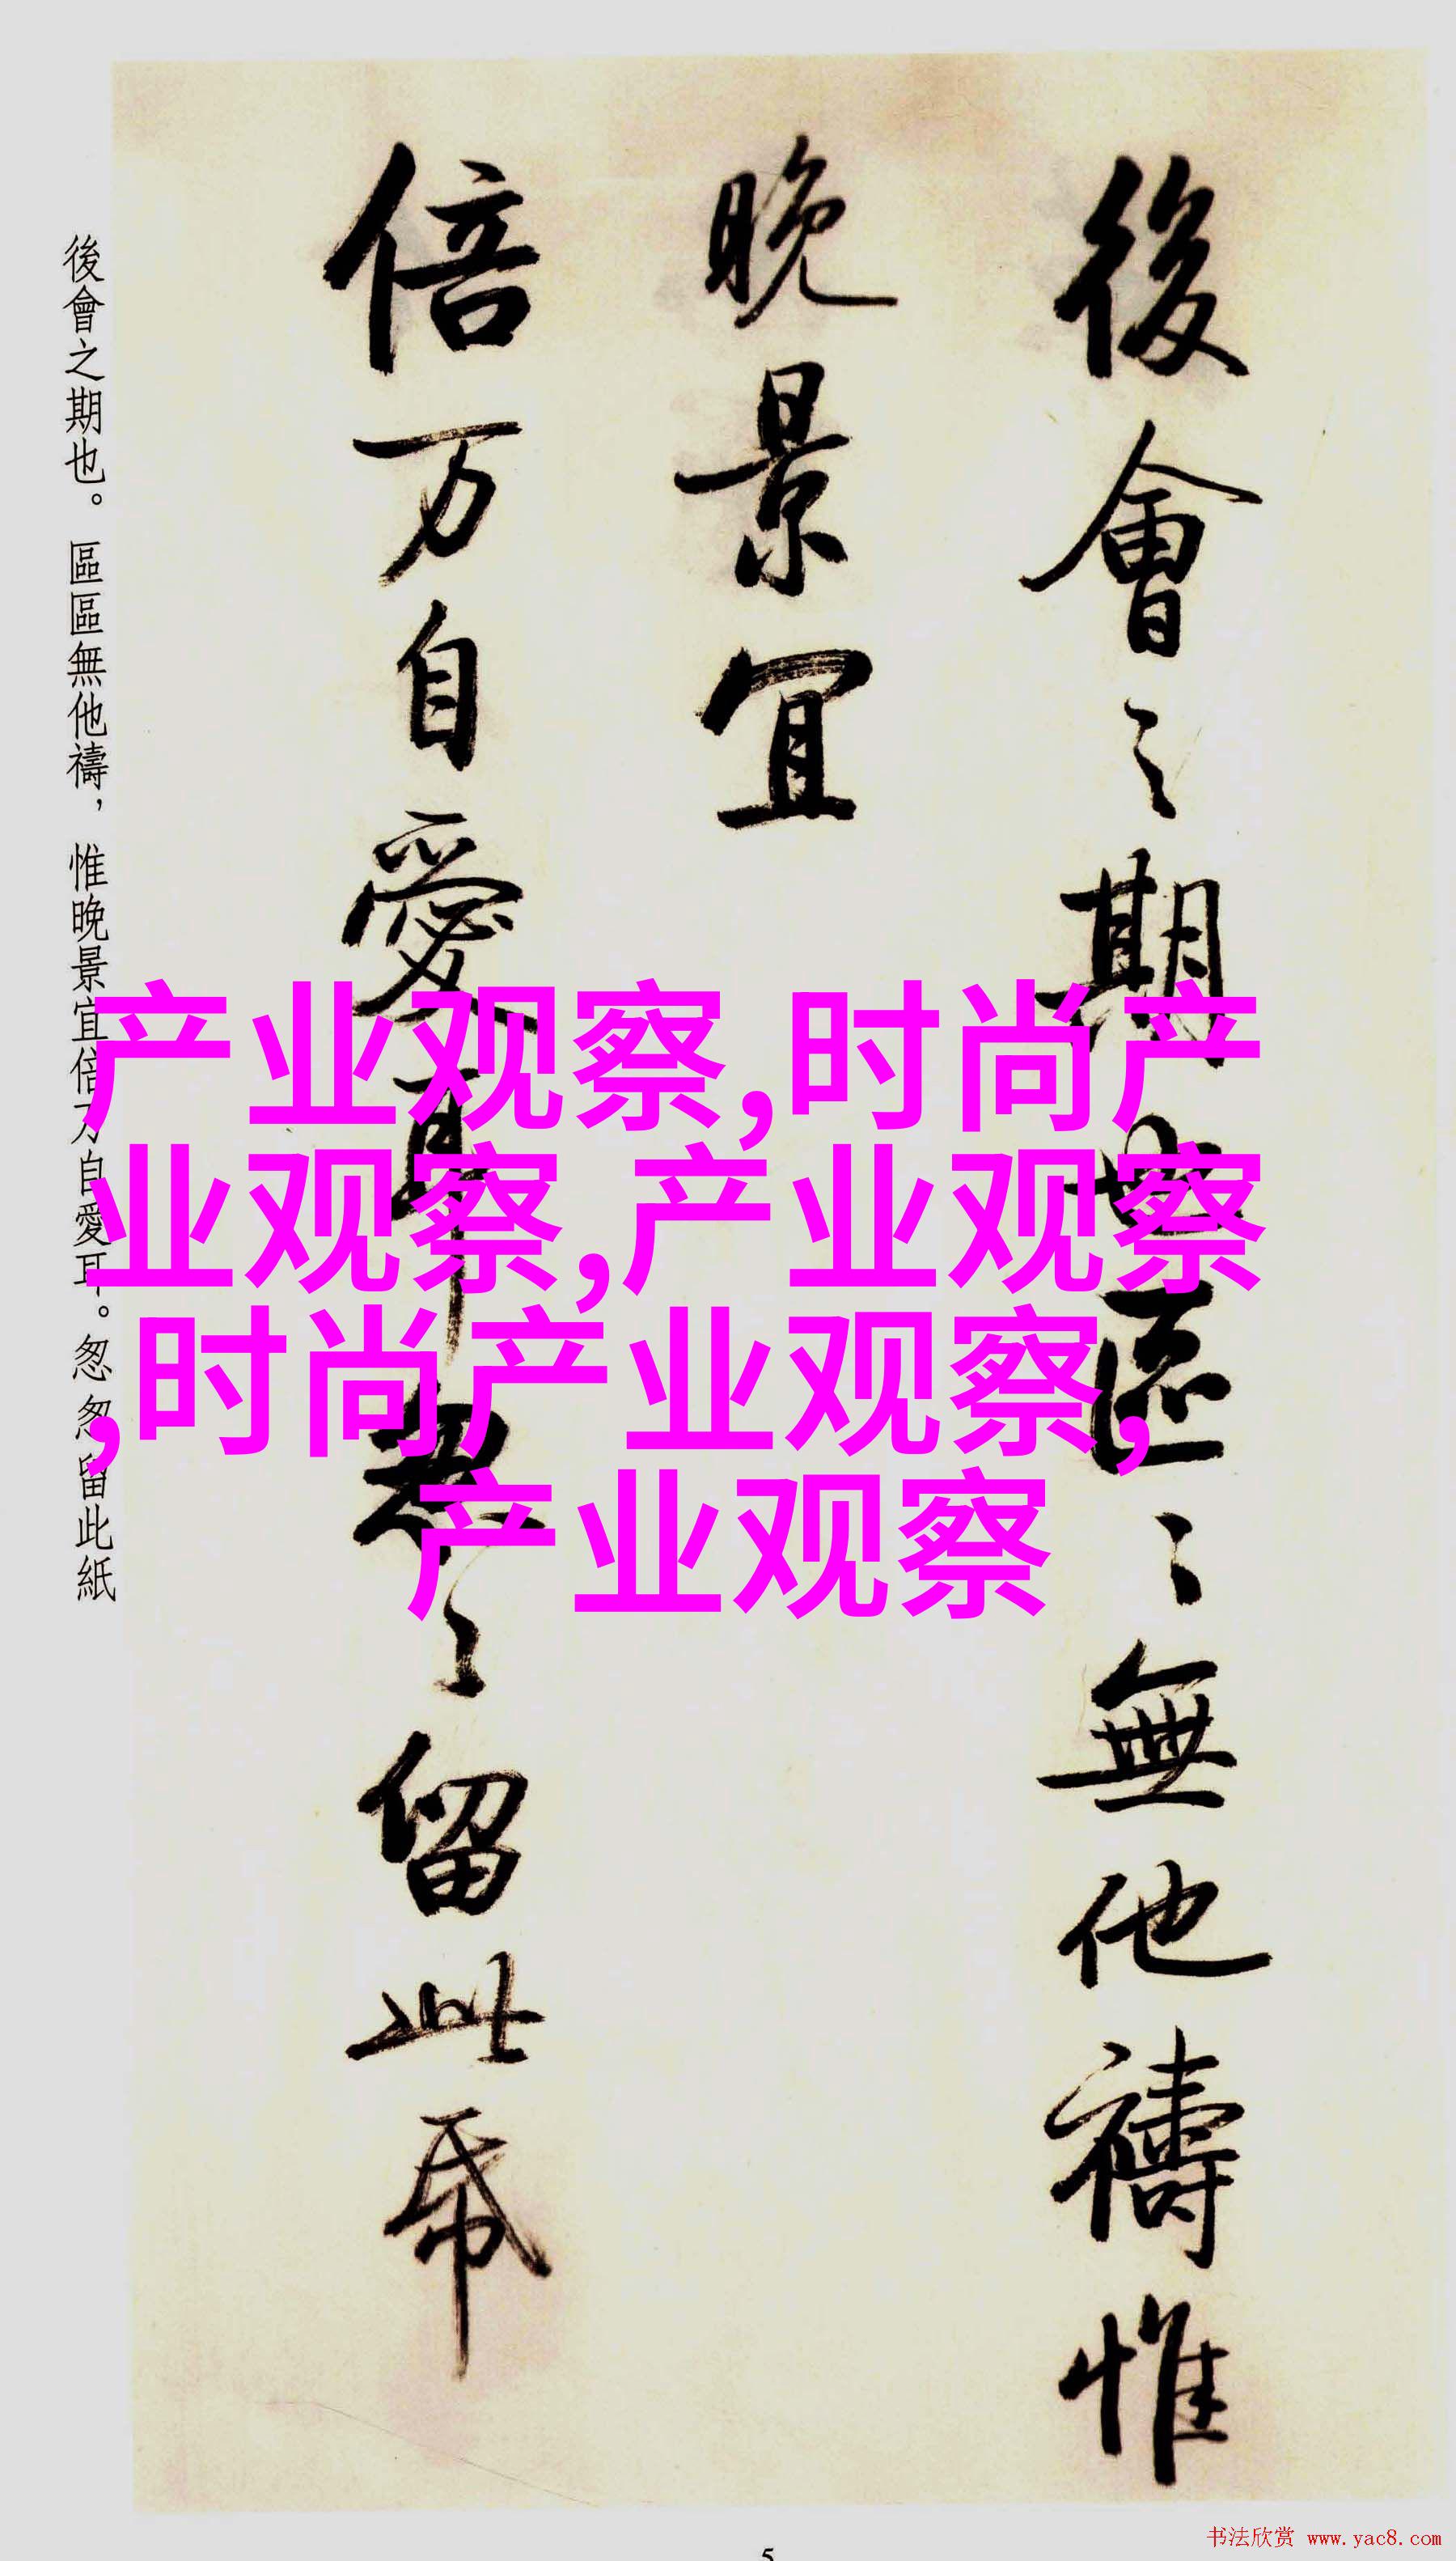 後會之期也區〻無他禱惟
晚景宜
倍万自愛耳怱〻留此帋
後會之期也。區區無他禱，惟晚景宜倍万自愛耳。怱怱留此紙
产业观察,时尚产
业观察,产业观察
,时尚产业观察,
产业观察
5
书法欣赏 www.yac8.com